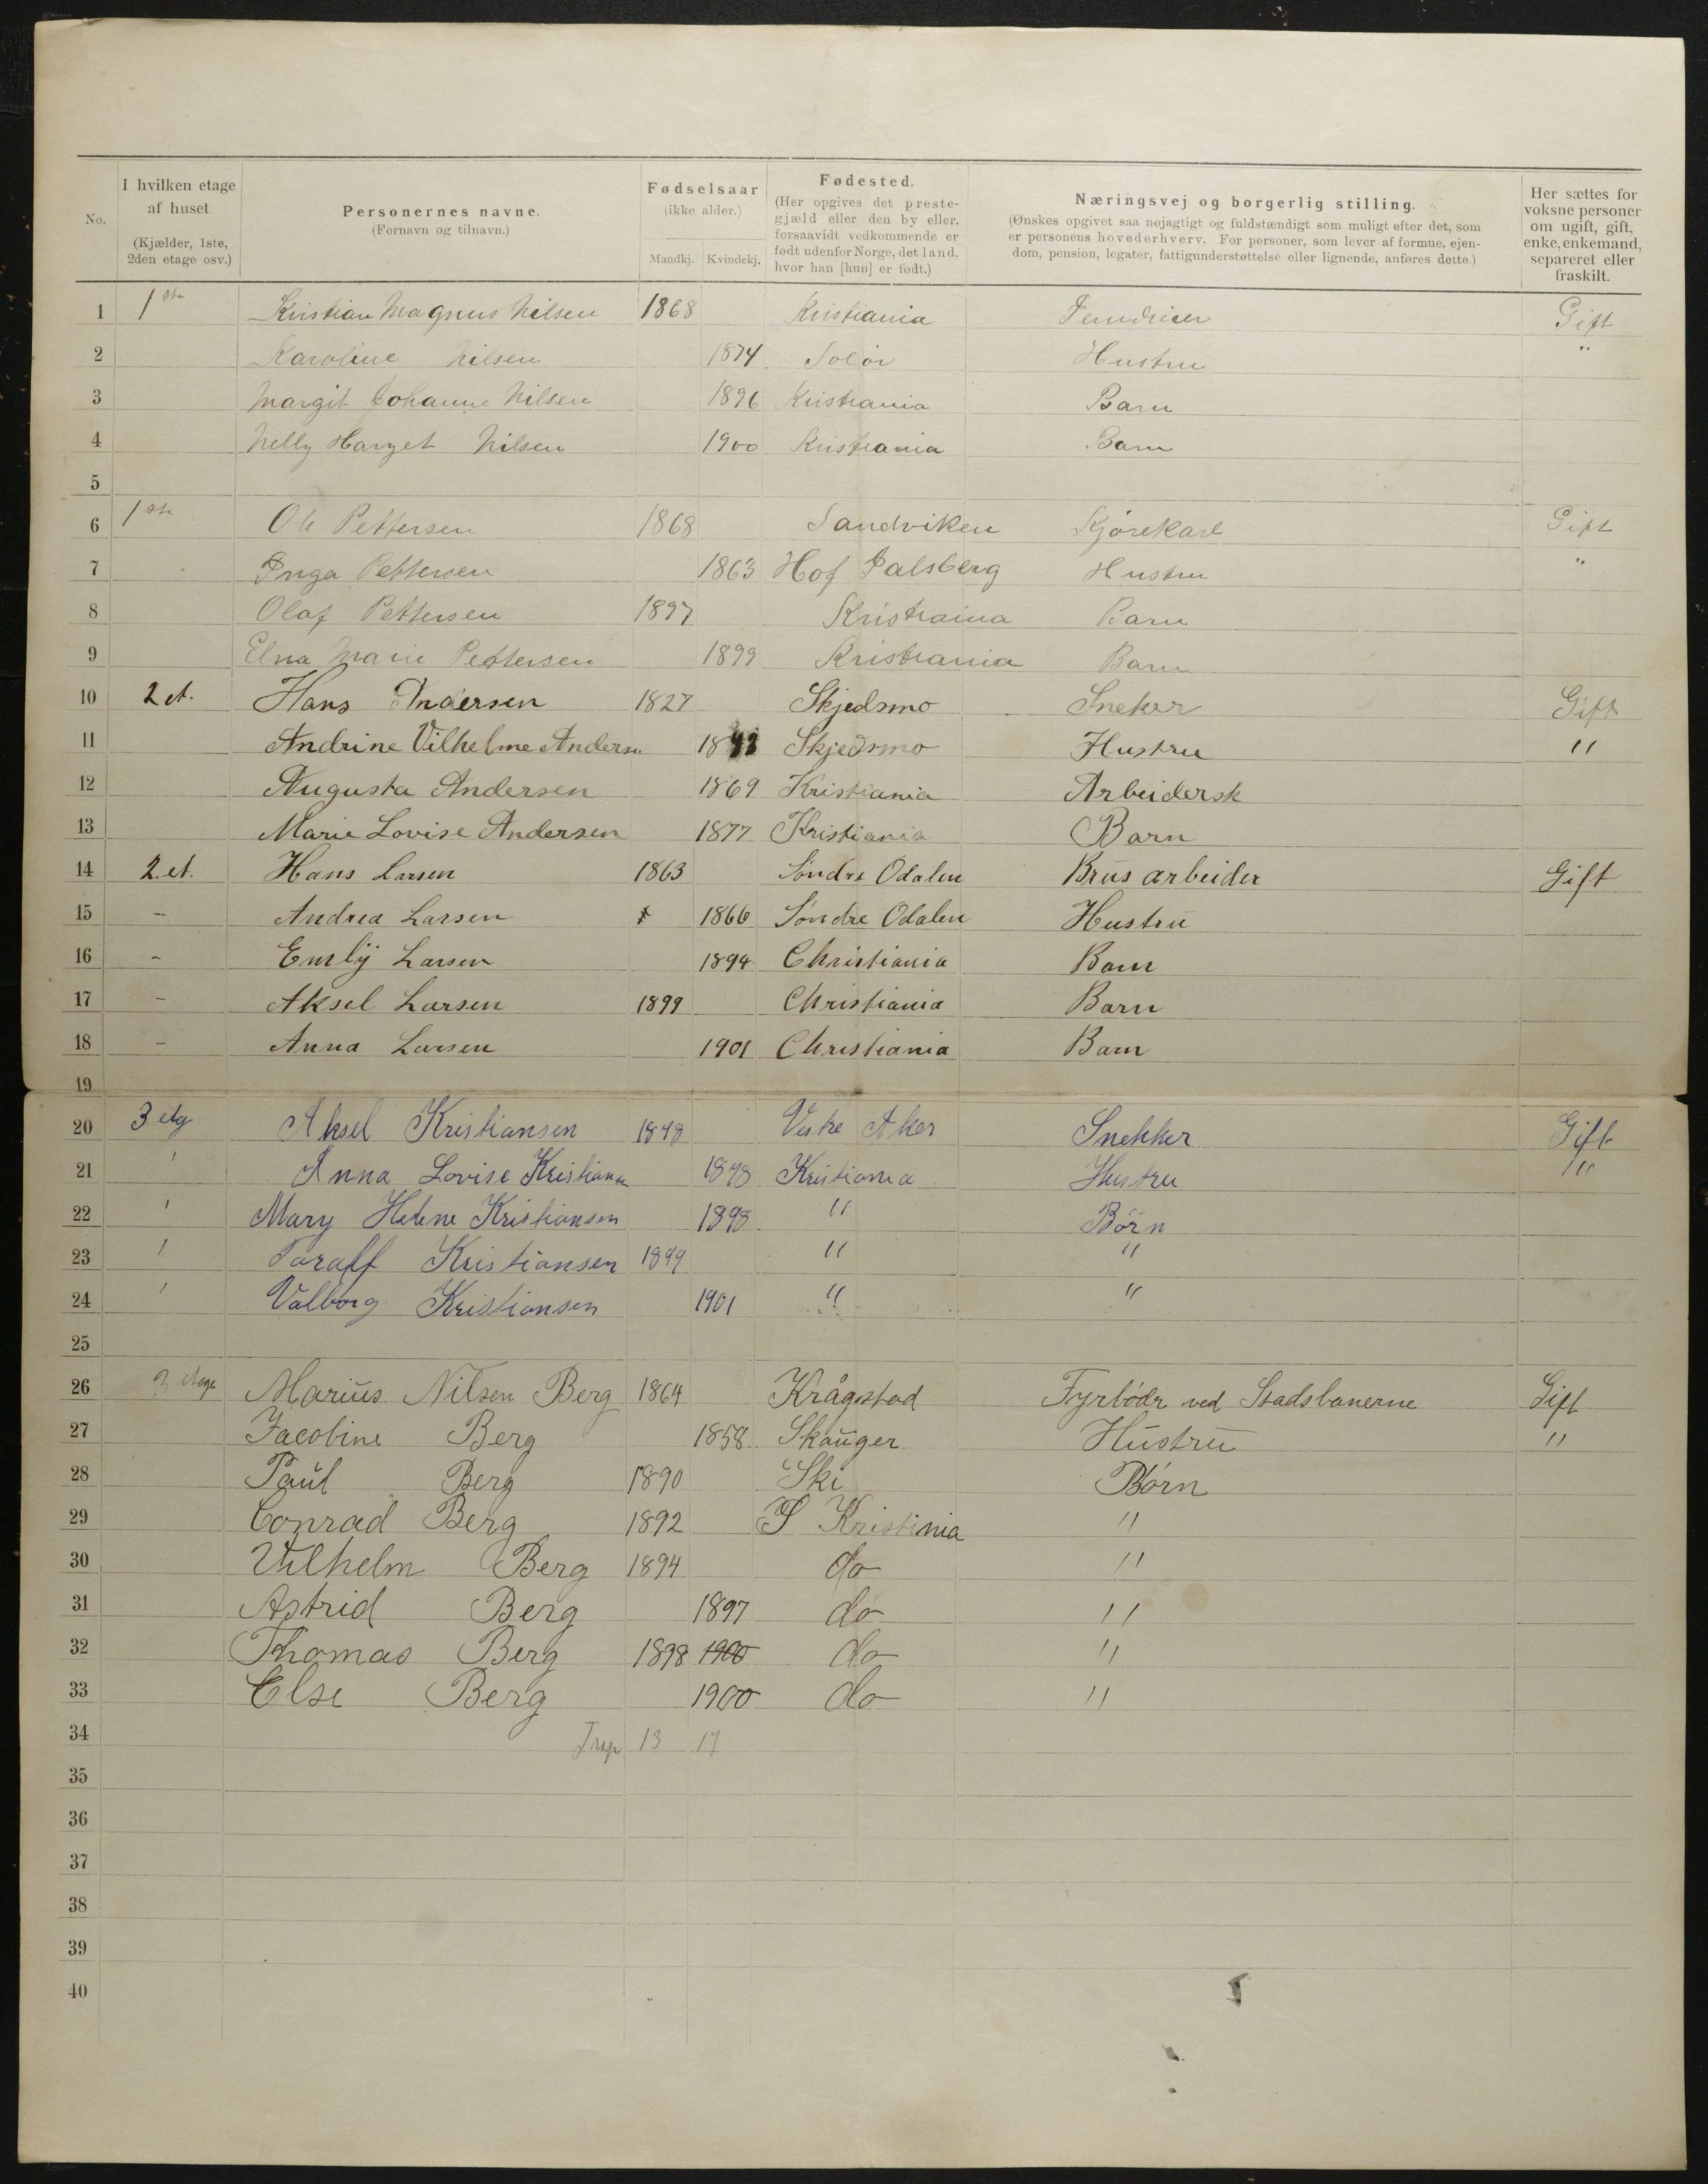 No.
I hvilken etage af huset. (Kjælder, 1ste, 2den etage osv.)
Personernes navne. (Fornavn og tilnavn.)
Fødselsaar (ikke alder.) Mandkj. Kvindekj.
Fødested. (Her opgives det prestegjæld eller den by eller, forsaavidt vedkommende er født udenfor Norge, det land, hvor han [hun] er født.)
Næringsvej og borgerlig stilling. (Ønskes opgivet saa nøjagtigt og fuldstændigt som muligt efter det, som er personens hovederhverv. For personer, som lever af formue, ejendom, pension, legater, fattigunderstøttelse eller lignende, anføres dette.)
Her sættes for voksne personer om ugift, gift, enke, enkemand, separeret eller fraskilt.
1 1ste Kristian Magnus Nilsen 1868 Kristiania Gift
2 Karoline Nilsen 1874 Solør Hustru "
3 Margit Johanne Nilsen 1896 Kristiania Barn
4 Nelly Nilsen 1900 Kristiania Barn
5
6 1ste Ole Pettersen 1868 Sandviken Kjørekarl Gift
7 Inga Pettersen 1863 Hof Hustru "
8 Olaf Pettersen 1897 Kristiania Barn
9 Elna Marie Pettersen 1899 Kristiania Barn
10 2 et. Hans Andersen 1827 Skjedsmo Sneker Gift
11 Andrine Vilhelmine Andersen Skjedsmo Hustru "
12 Augusta Andersen 1869 Kristiania Arbeidersk
13 Marie Lovise Andersen 1877 Kristiania Barn
14 2. et. Hans Larsen 1863 Søndre Odalen Brus arbeider Gift
15 - Andrea Larsen 1866 Søndre Odalen Hustru
16 - Emily Larsen 1894 Christiania Barn
17 - Aksel Larsen 1899 Christiania Barn
18 - Anna Larsen 1901 Christiania Barn
19
20 3 etg Aksel Kristiansen 1848 Vestre Aker Snekker Gift
21 ' Anna Lovise Kristiansen Kristiania Hustru "
22 ' Mary Helene Kristiansen 1898 " Børn
23 ' Kristiansen 1899 " "
24 ' Valborg Kristiansen 1901 " "
25
26 3 etage Marius Nilsen Berg 1864 Krågstad Fyrbødr ved Stadsbanerne Gift
27 Jacobine Berg 1858 Skauger Hustru "
28 Paul Berg 1890 Ski Børn
29 Conrad Berg 1892 Kristinia "
30 Vilhelm Berg 1894 do "
31 Astrid Berg 1897 do "
32 Thomas Berg 1898 1900 do "
33 Else Berg 1900 do "
34 13 17
35
36
37
38
39
40